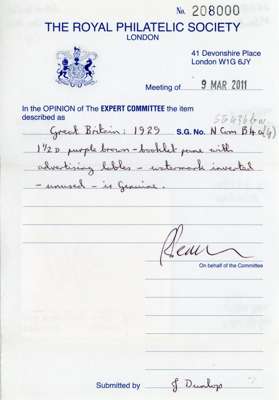 No. 208000
THE ROYAL PHILATELIC SOCIETY
LONDON
41 Devonshire Place
London W1G 6JY
Meeting of 9 MAR 2011
In the OPINION of The EXPERT COMMITTEE the item
described as
Great Britain: 1929 S.G. No. N Com B4a (4)
1½D purple brown - booklet pane with
advertising lables - watermark inverted
- unused - is Genuine.
On behalf of the Committee
Submitted by J Dunlop